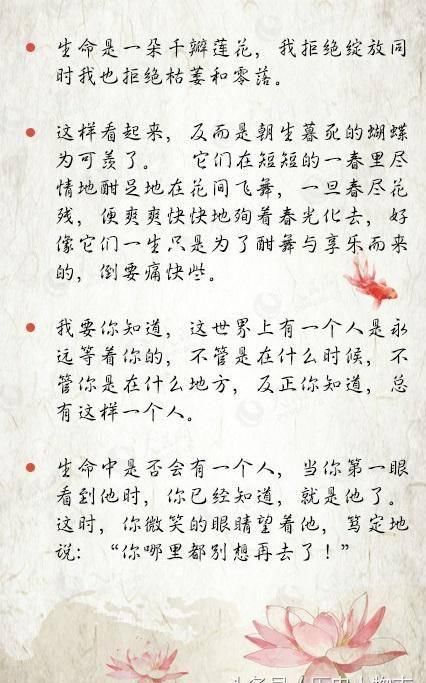 生命是一朵千瓣莲花，我拒绝绽放同
时我也拒绝枯萎和零落。
这样看起来，反而是朝生暮死的蝴蝶
为可羡了。 它们在短短的一春里尽
情地酣足地在花间飞舞，一旦春尽花
残，便爽爽快快地殉着春光化去，好
像它们一生只是为了酣舞与享乐而来
的，倒要痛快些。
我要你知道，这世界上有一个人是永
远等着你的，不管是在什么时候，不
管你是在什么地方，反正你知道，总
有这样一个人。
生命中是否会有一个人，当你第一眼
看到他时，你已经知道，就是他了。
这时，你微笑的眼睛望着他，笃定地
说：“你哪里都别想再去了！”